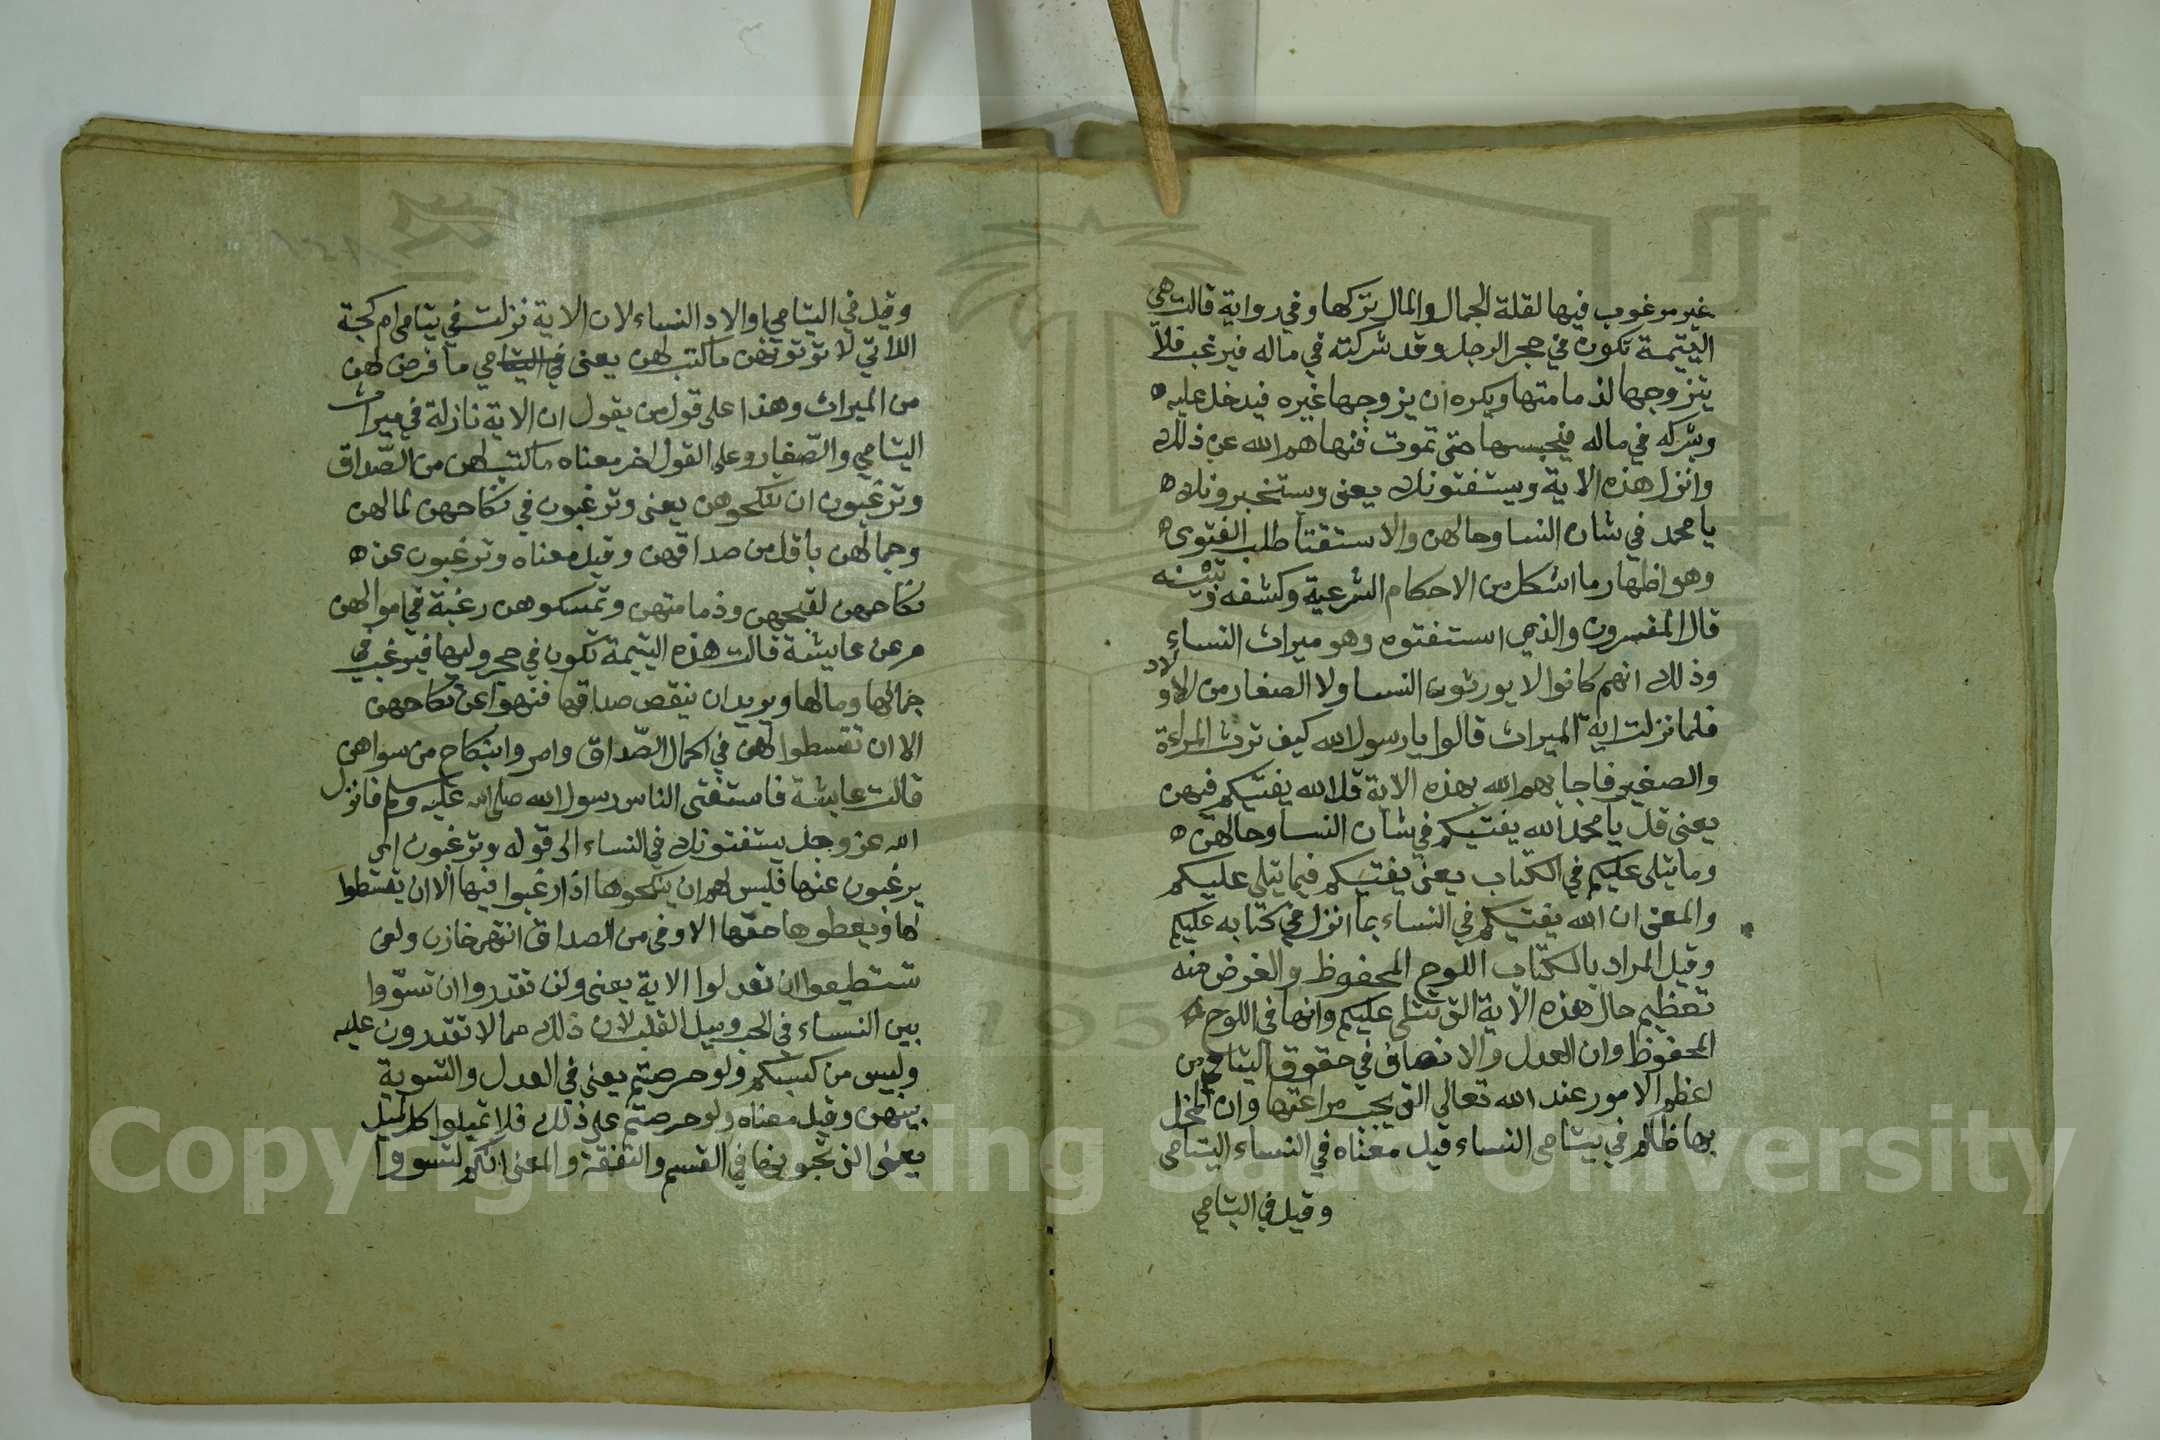 غير مرغوب فيها لقلة الجمال والمال تركها وفي رواية قالت هي
اليتيمة تكون في حجر الرجل وقد شركته في ماله فيرغب فلا
يتزوجها لذمامتها ويكره ان يزوجها غيره فيدخل عليه
ويشركه في ماله فيحبسها حتى تموت فنهاهم الله عن ذلك
وانزل هذه الاية ويستفتونك يعنى وستخبرونك
يا محمد في شان النسا وحالهن والاستفتا طلب الفتوى
وهو اظهار ما اشكل من الاحكام الشرعية وكشفه وتبينه
قال المفسرون والذي استفتوه وهو ميراث النساء
وذلك انهم كانوا لا يورثون النسا ولا الصغار من الاولاد
فلما نزلت اية الميراث قالوا يا رسول الله كيف ترث المراءة
والصغير فاجابهم الله بهذه الاية قل الله يفتيكم فيهن
يعنى قل يا محمد الله يفتيكم في شان النسا وحالهن
وما يتلى عليكم في الكتاب يعنى يفتيكم فيما يتلى عليكم
والمعنى ان الله يفتيكم في النساء بما انزل في كتابه عليكم
وقيل المراد بالكتاب اللوح المحفوظ والغرض منه
تعظيم حال هذه الاية التي تتلى عليكم وانها في اللوح
المحفوظ وان العدل والانصاف في حقوق اليتامى من
اعظم الامور عند الله تعالى التي يجب مراعتها وان المخل
بها ظالم في يتامى النساء قيل معناه في النساء اليتامى
وقيل في اليتامى
وقيل في اليتامى اولاد النساء لان الاية نزلت في يتامى ام كجة
اللاتي لا تؤتونهن ما كتب لهن يعنى ما فرض لهن
من الميراث وهذا على قول من يقول ان الاية نازلة في ميراث
اليتامى والصّغار وعلى القول اخر معناه ما كتب لهن من الصّداق
وترغبون ان تنكحوهن يعنى وترغبون في نكاحهن لمالهن
وجمالهن باقل من صداقهن وقيل معناه وترغبون عن
نكاحهن لقبحهن وذمامتهن وتمسكوهن رغبة في اموالهن
م عن عايشة قالت هذه اليتيمة تكون في حجر وليها فيرغب في
جمالها ومالها ويريد ان ينقص صداقها فنهوا عن نكاحهن
الا ان تقسطوا لهن في اكمال الصّداق وامروا بنكاح من سواهن
قالت عايشة فاستفتى الناس رسول الله صلى الله عليه وسلم فانزل
الله عز وجل يستفتونك في النساء الى قوله وترغبون
يرغبون عنها فليس لهم ان ينكحوها اذا رغبوا فيها الا ان يقسطوا
لها ويعطوها حقها الاوفى من الصداق انتهى خازن ولن
تستطيعوا ان تعدلوا الاية يعنى ولن تقدروا ان تسوّوا
بين النساء في الحب وميل القلب لان ذلك مما لا تقدرون عليه
وليس من كسبكم ولو حرصتم يعنى في العدل والتسوية
بينهن وقيل معناه ولو حرصتم على ذلك فلا تميلوا كل الميل
يعنى الى التي تحبونها في القسم والنفقة والمعنى انكم لتسووا
Copyright © King Saud University